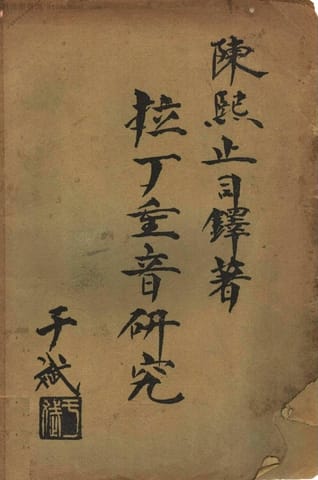 陳熙止司鐸著
拉丁重音研究
于斌